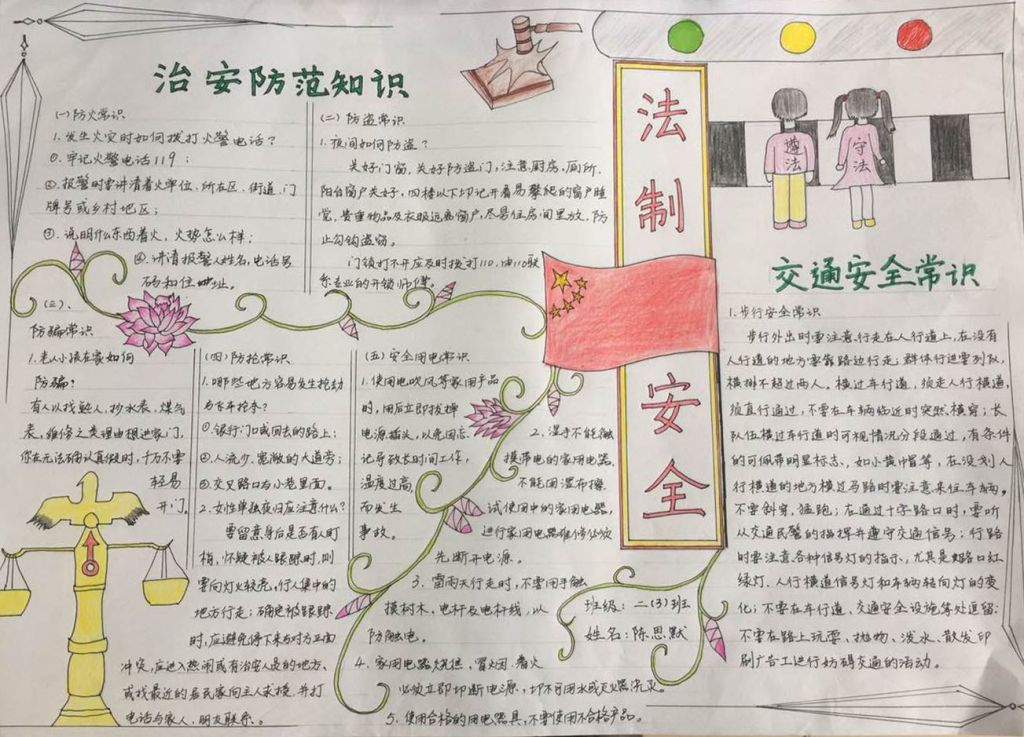 治安防范知识
(一)防火常识
1.发生火灾时如何拨打火警电话？
①.牢记火警电话119；
②.报警时要讲清着火单位、所在区、街道、门
牌号或乡村地区；
③.说明什么东西着火，火势怎么样；
④.讲清报警人姓名,电话号
码和住址。
(二)防盗常识
1.夜间如何防盗？
关好门窗、关好防盗门,注意厨房,厕所、
阳台窗户关好，四楼以下切记开着易攀爬的窗户睡
觉,贵重物品及衣服远离窗户,尽量住房间里放,防
止勾钩盗窃。
门锁打不开应及时拨打110,由110联
系专业的开锁师傅。
(三)、
防骗常识
1.老人小孩在家如何
防骗？
有人以找熟人,抄水表、煤气
表,维修之类理由想进家门,
你在无法确认真假时,千万不要
轻易
开门。
(四)防抢常识
1.哪些地方容易发生抢劫
与飞车抢夺？
①.银行门口或回去的路上；
②.人流少、宽敞的大道旁；
③.交叉路口与小巷里面。
2.女性单独夜归应注意什么？
要留意身后是否有人盯
梢,怀疑被人跟踪时,则
要向灯火较亮,行人集中的
地方行走；确定被跟踪
时,应避免停下来与对方正面
冲突,应进入热闹或有治安人员的地方、
或找最近的居民家向主人求援,并打
电话与家人,朋友联系。
(五)安全用电常识
1.使用电吹风等家用产品
时,用后立即拔掉
电源插头,以免因忘
记导致长时间工作,
温度过高
而发生
事故。
2、湿手不能触
摸带电的家用电器,
不能用湿布擦
试使用中的家用电器,
进行家用电器维修必须
先断开电源。
3、雷雨天行走时,不要用手触
摸树木、电杆及电杆线,以
防触电。
4、家用电器烧焦、冒烟、着火
必须立即切断电源,切不可用水或灭火器浇灭。
5、使用合格的用电器具,不要使用不合格产品。
法制安全
遵法
守法
交通安全常识
1.步行安全常识
步行外出时要注意,行走在人行道上,在没有
人行道的地方要靠路边行走；群体行进要列队,
横排不超过两人。横过车行道,须走人行横道,
须直行通过,不要在车辆临近时突然横穿；长
队伍横过车行道时可视情况分段通过,有条件
的可佩带明显标志、如小黄帽等,在没划人
行横道的地方横过马路时要注意来往车辆,
不要斜穿、猛跑；在通过十字路口时,要听
从交通民警的指挥并遵守交通信号；行路
时要注意各种信号灯的指示,尤其是路口红
绿灯、人行横道信号灯和车辆转向灯的变
化；不要在车行道、交通安全设施等处逗留；
不要在路上玩耍、抛物、泼水、散发印
刷广告工进行妨碍交通的活动。
班级：二(3)班
姓名：陈思默